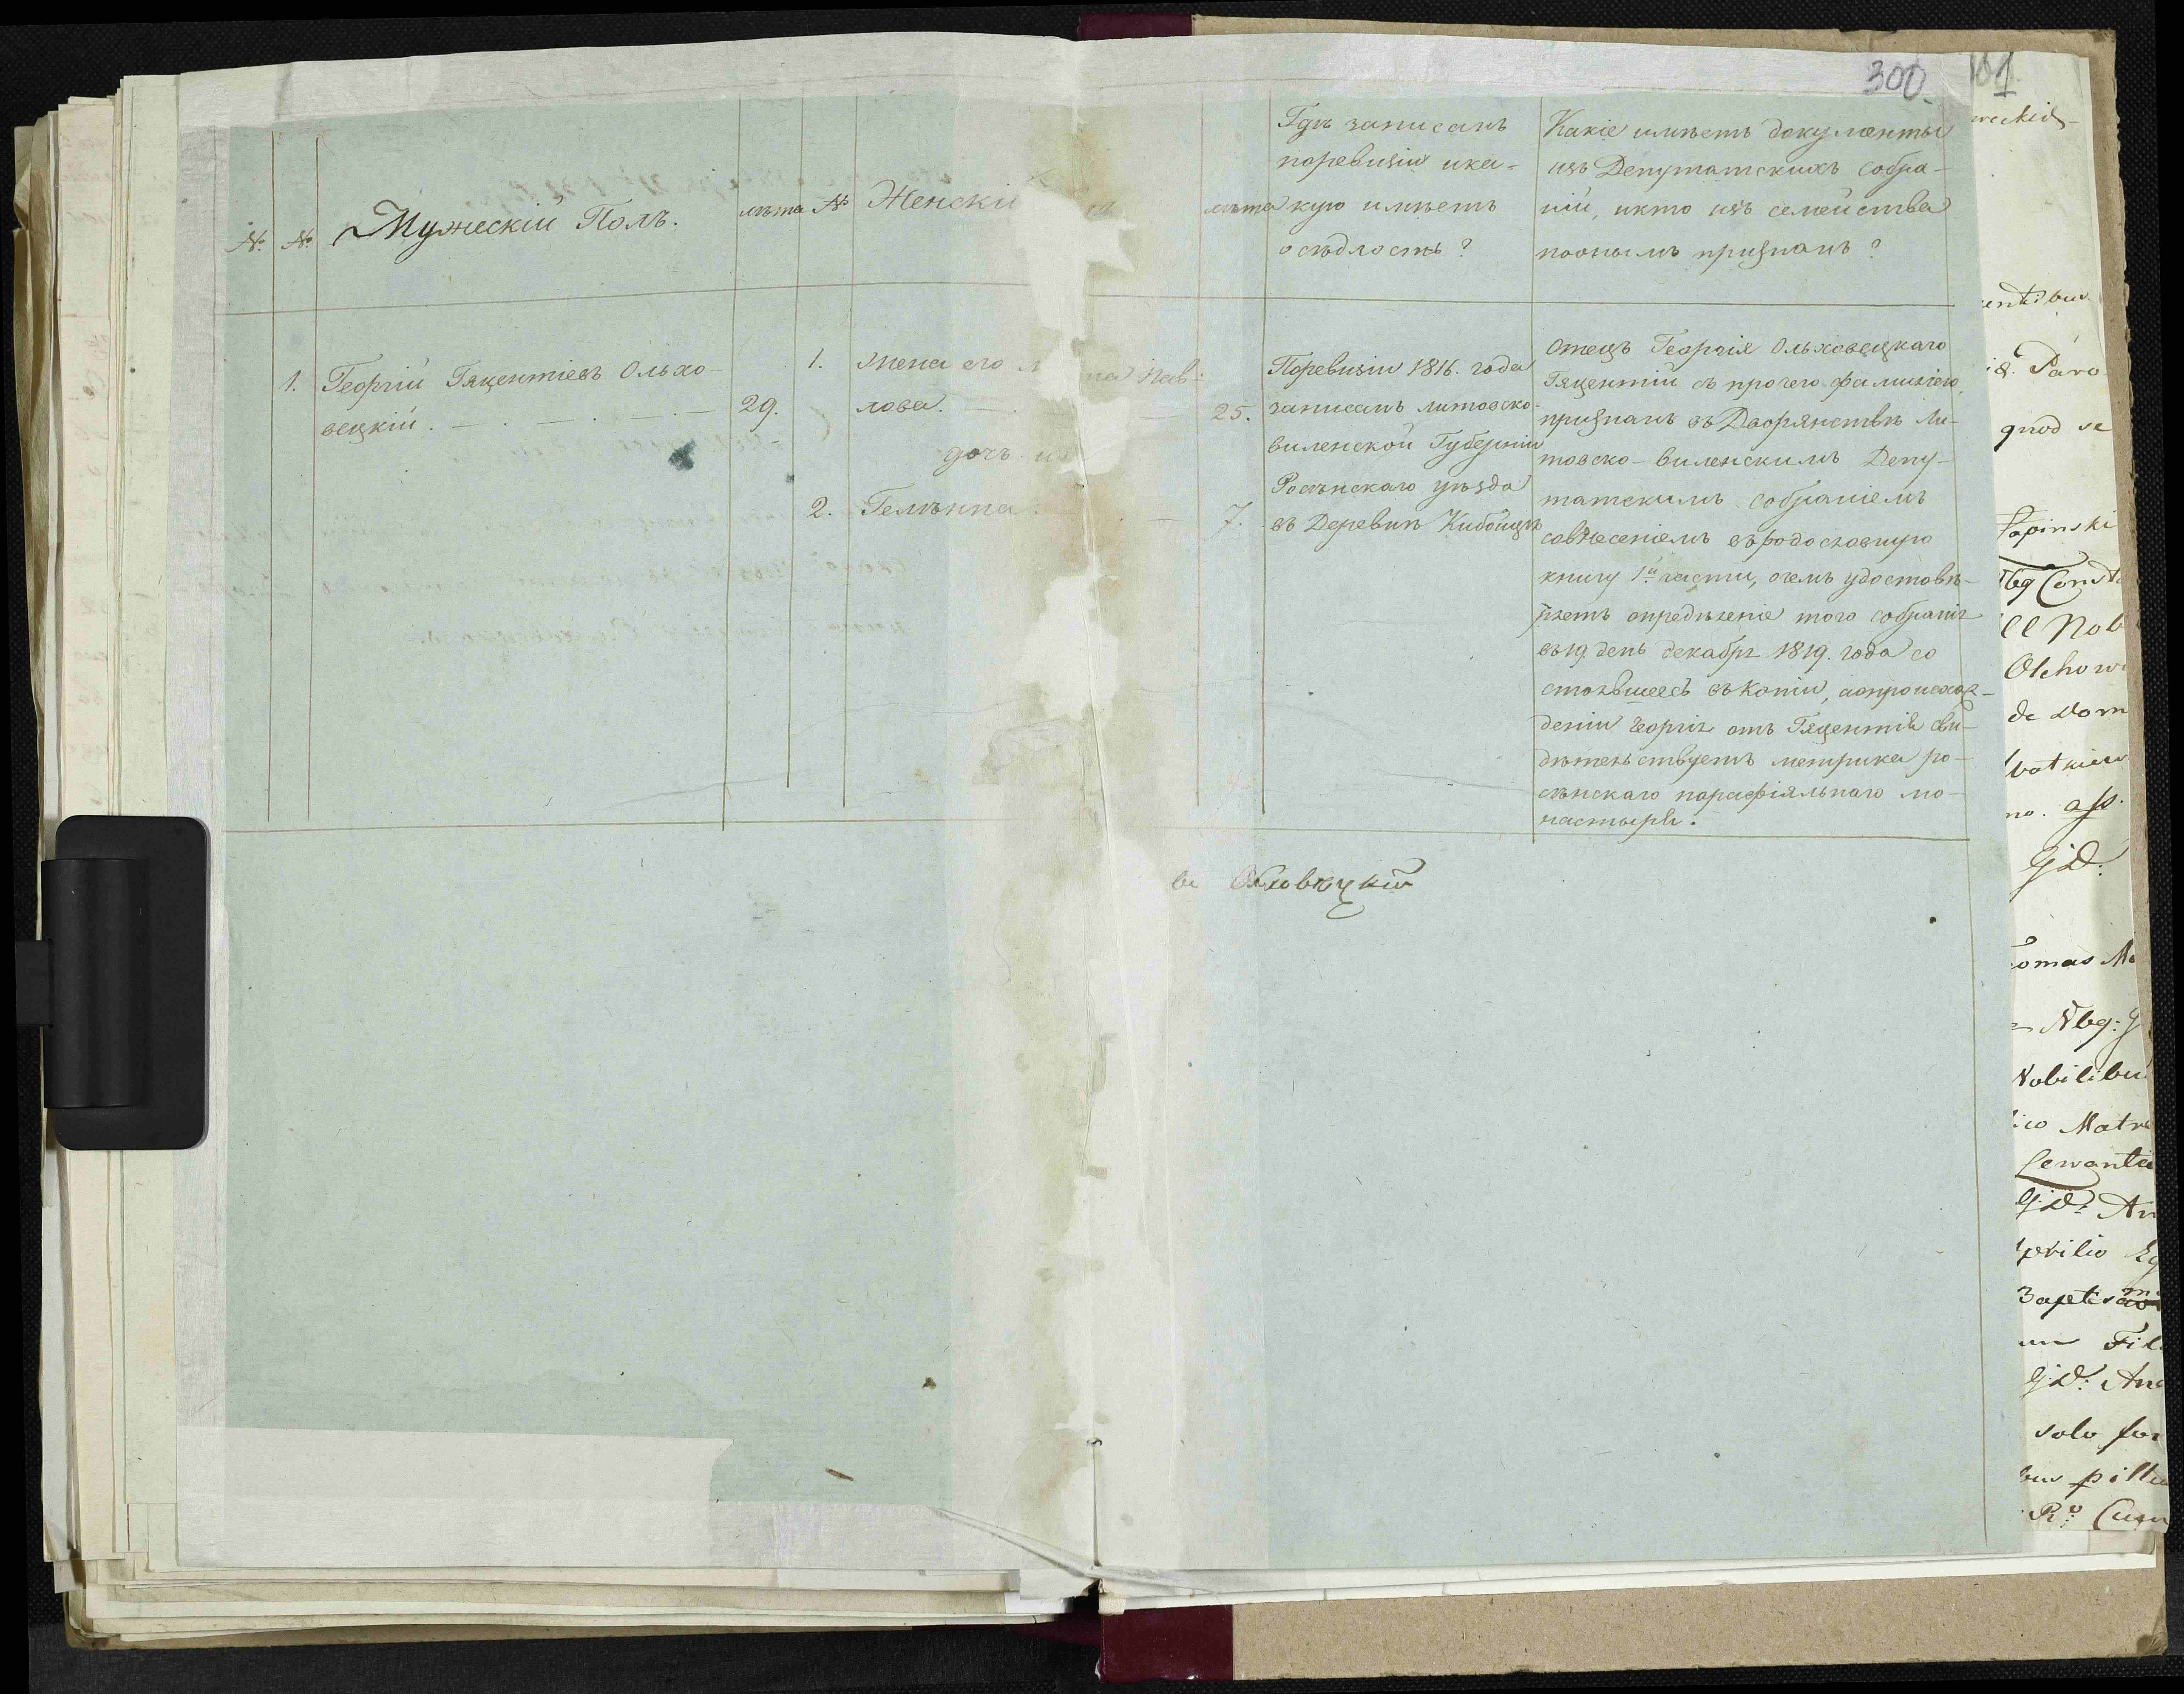 300.
101
№.
№.
Мужескій Полъ.
лѣта
№
Женскі
лѣта
Гдѣ записанъ
поревизіи ика-
кую имѣетъ
осѣдлость?
Какіе имѣетъ документы
изъ Депутатскихъ собра-
ній, икто изъ семейства
поонымъ признанъ?
1. Георгій Гяцентіевъ Ольхо-
вецкій. 29.
1. Жена его на Пав-
лова. 25.
дочь
2. Гелѣнна. 7.
Поревизіи 1816. года
записанъ литовско-
виленской Губерніи
Росіенскаго уѣзда
въ Деревнѣ Кибойцѣ
Отецъ Георгія Ольховецкаго
Гяцентій съ прочею фамиліею
признанъ въ Дворянствѣ Ли-
товско-виленскимъ Депу-
татскимъ собраніемъ
совнесеніемъ въ родословную
книгу 1й части, очемъ удостовѣ-
ряетъ опредѣленіе того собранія
въ 19. день декабря 1819. года со
стоявшееся въ копіи, аопроисхож-
деніи Георгія отъ Гяцентія сви-
дѣтельствуетъ метрика ро-
сіенскаго парафіяльнаго мо-
настыря.
Ольховецкій
quod se
Łopinski
Nob
Olchow
de Dom
GD:
omas
Nbg:
Nobilibu
Matre
GD: An
Fil
GD: Ana
solo